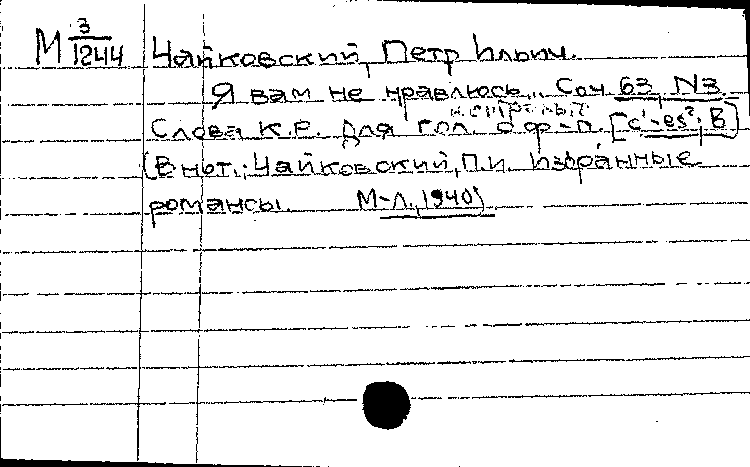 М 3/1244 Чайковский, Петр Ильич.
Я вам не нравлюсь.. Соч 63, N3.
Слова К.Р. Для гол. с ф-п. [c'-es²; B]
(В нот.: Чайковский, П.И. Избранные
романсы. М-Л., 1940).